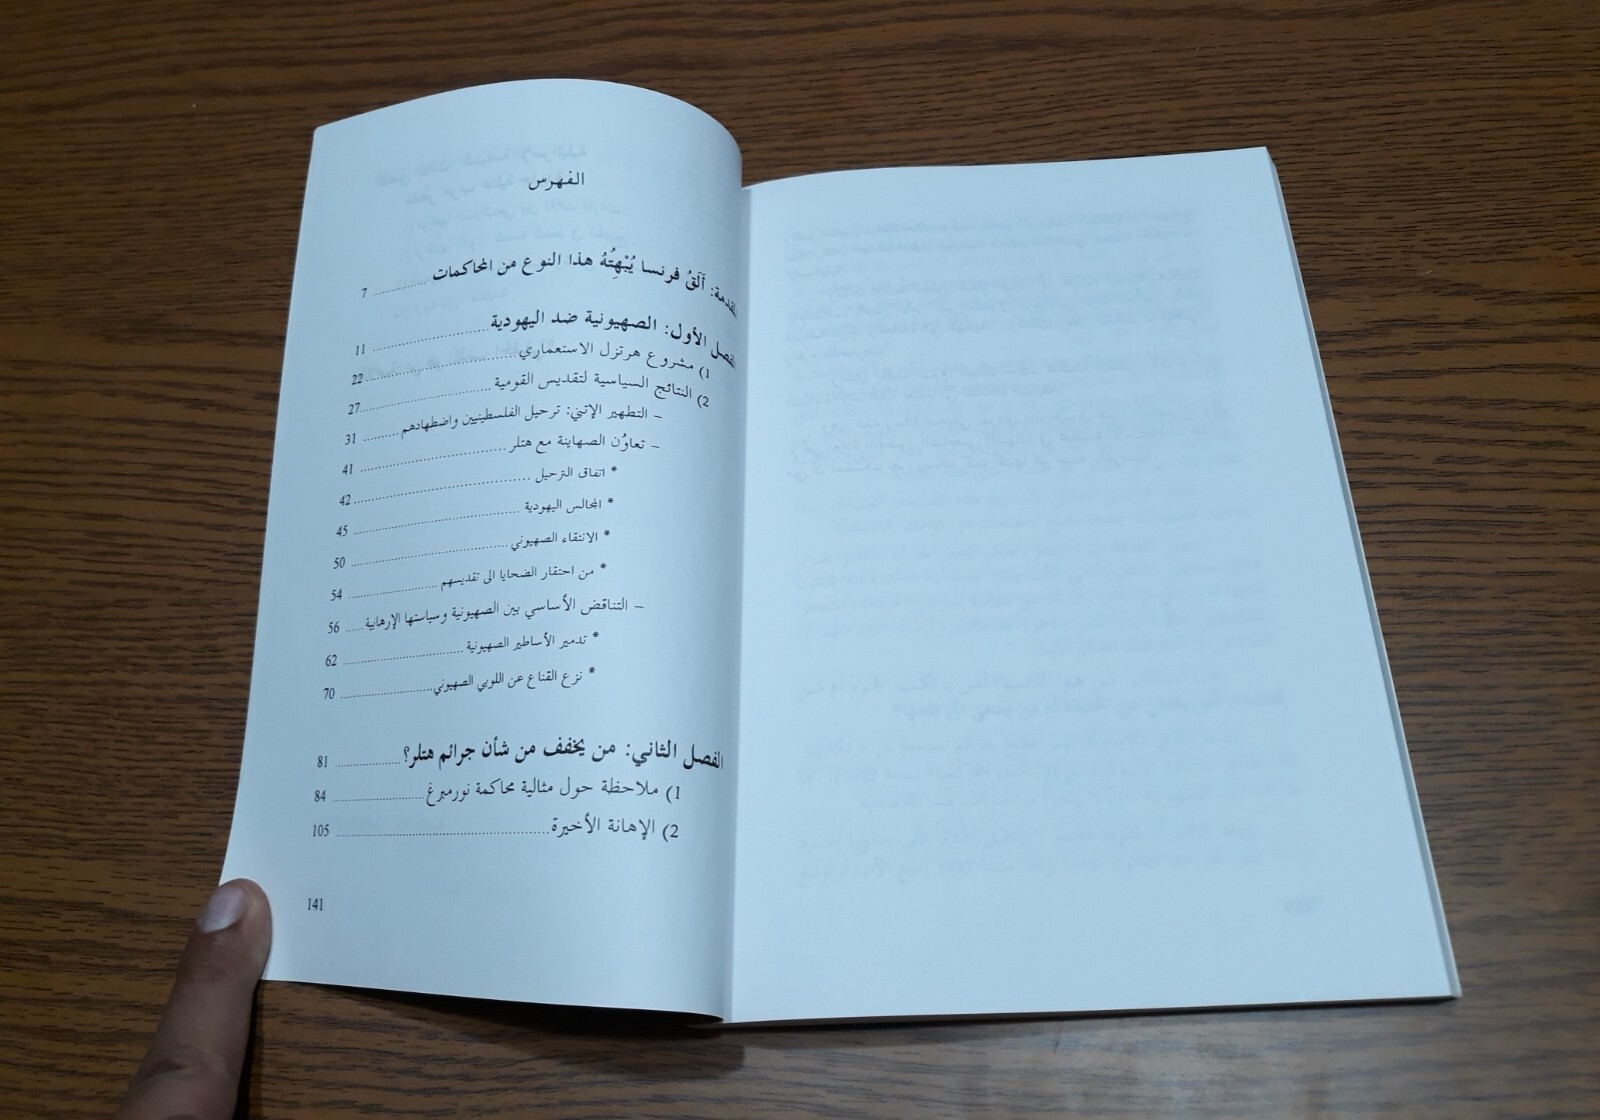 الفهرس
المقدمة: أَلَقُ فرنسا يُبْهِتُهُ هذا النوع من المحاكمات ............ 7
الفصل الأول: الصهيونية ضد اليهودية ............ 11
1) مشروع هرتزل الاستعماري ............ 22
2) النتائج السياسية لتقديس القومية ............ 27
– التطهير الإتني: ترحيل الفلسطينيين واضطهادهم ............ 31
– تعاوُن الصهاينة مع هتلر ............ 41
* اتفاق الترحيل ............ 42
* المجالس اليهودية ............ 45
* الانتقاء الصهيوني ............ 50
* من احتقار الضحايا الى تقديسهم ............ 54
– التناقض الأساسي بين الصهيونية وسياستها الإرهابية ..... 56
* تدمير الأساطير الصهيونية ............ 62
* نزع القناع عن اللوبي الصهيوني ............ 70
الفصل الثاني: من يخفف من شأن جرائم هتلر؟ ............ 81
1) ملاحظة حول مثالية محاكمة نورمبرغ ............ 84
2) الإهانة الأخيرة ............ 105
141